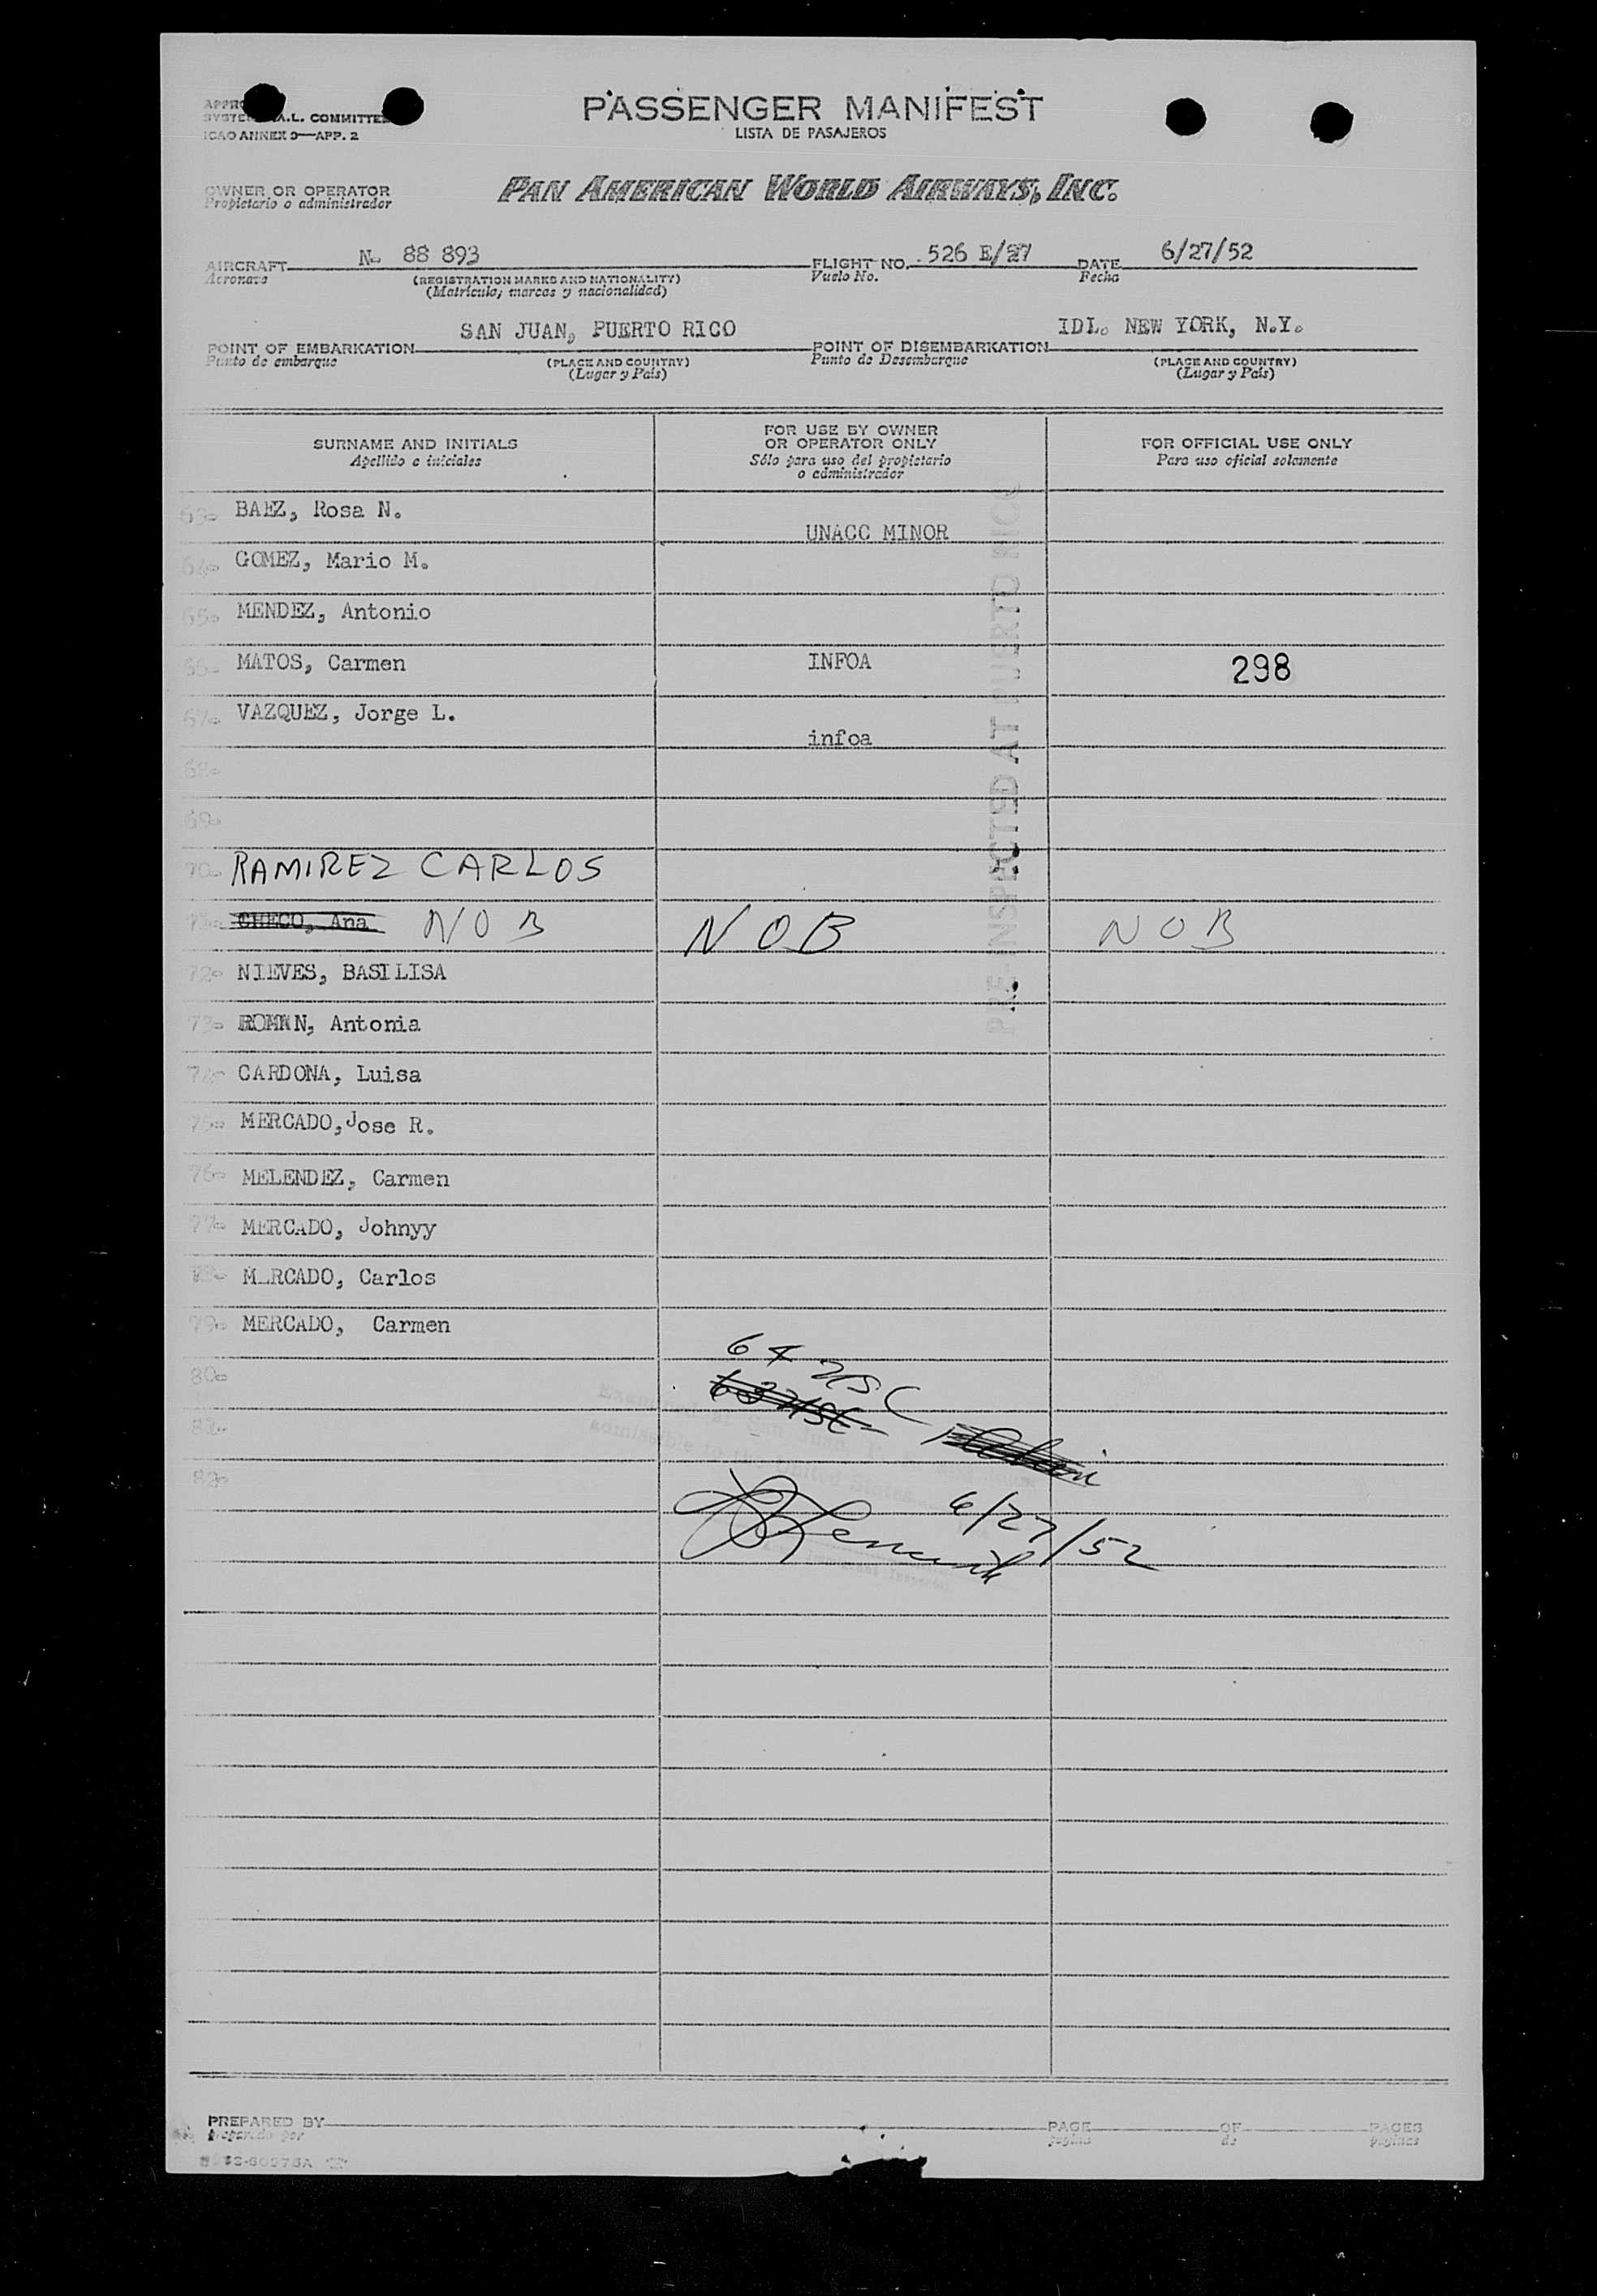 PASSENGER MANIFEST
LISTA DE PASAJEROS
A.L. COMMITTEE
ICAO ANNEX 9—APP. 2
OWNER OR OPERATOR
Propietario o administrador
PAN AMERICAN WORLD AIRWAYS, INC.
AIRCRAFT N. 88 893 FLIGHT NO. 526 E/27 DATE 6/27/52
Aeronave (REGISTRATION MARKS AND NATIONALITY) Vuelo No. Fecha
(Matrícula, marcas y nacionalidad)
SAN JUAN, PUERTO RICO IDL. NEW YORK, N.Y.
POINT OF EMBARKATION POINT OF DISEMBARKATION
Punto de embarque (PLACE AND COUNTRY) Punto de Desembarque (PLACE AND COUNTRY)
(Lugar y País) (Lugar y País)
SURNAME AND INITIALS
Apellido e iniciales
FOR USE BY OWNER
OR OPERATOR ONLY
Sólo para uso del propietario
o administrador
FOR OFFICIAL USE ONLY
Para uso oficial solamente
63- BAEZ, Rosa N. UNACC MINOR
64- GOMEZ, Mario M.
65- MENDEZ, Antonio
66- MATOS, Carmen INFOA 298
67- VAZQUEZ, Jorge L. infoa
68-
69-
70- RAMIREZ CARLOS
71- CHECO, Ana NOB NOB NOB
72- NIEVES, BASILISA
73- ROMAN, Antonia
74- CARDONA, Luisa
75- MERCADO, Jose R.
76- MELENDEZ, Carmen
77- MERCADO, Johnyy
78- M_RCADO, Carlos
79- MERCADO, Carmen
80-
81-
82-
PRE-INSPECTED AT PUERTO RICO
64 USC
63 USC
Examined at San Juan, P. R. and
admissible to the United States
6/27/52
PREPARED BY PAGE OF PAGES
preparado por página de páginas